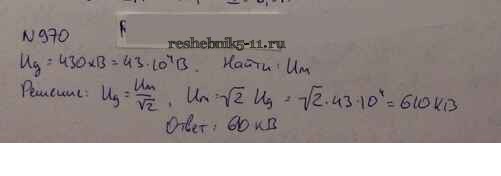 N 970
reshebnik5-11.ru
Uд = 430 кВ = 43·10⁴ В. Найти: Uм
Решение: Uд = Uм/√2, Uм = √2 Uд = √2·43·10⁴ = 610 кВ
Ответ: 610 кВ